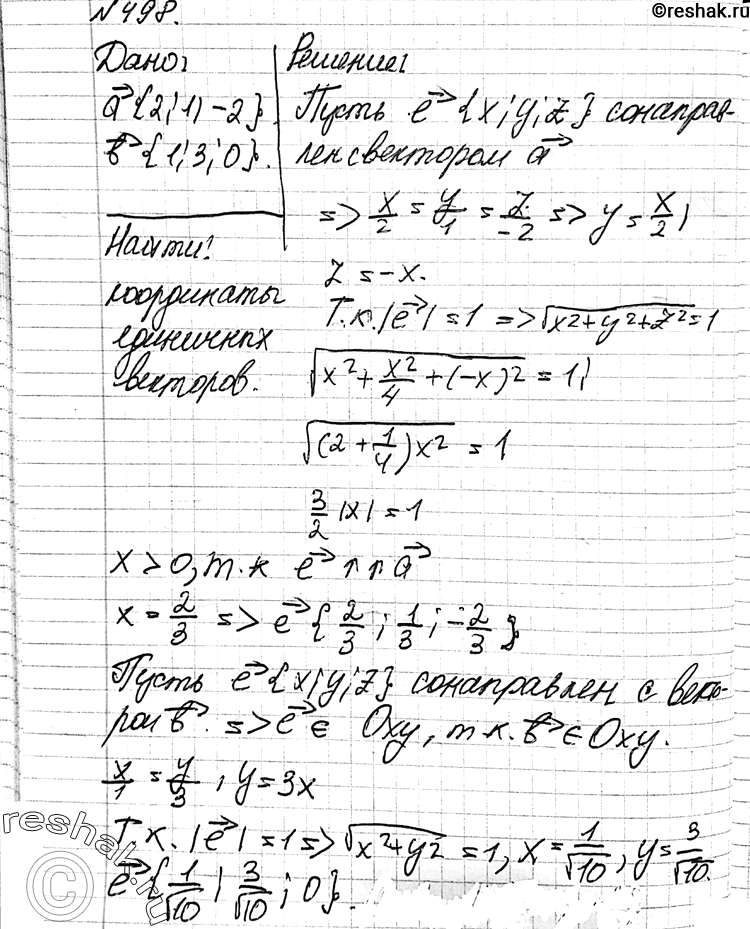 ©reshak.ru
№498.
Дано:
a⃗ {2; 1; -2}.
b⃗ {1; 3; 0}.
Найти:
координаты
единичных
векторов.
Решение:
Пусть e⃗ {x; y; z} сонаправ-
лен с вектором a⃗
=> x/2 = y/1 = z/-2 => y = x/2;
z = -x.
Т.к. |e⃗| = 1 => √(x²+y²+z²) = 1
√(x² + x²/4 + (-x)²) = 1;
√((2 + 1/4)x²) = 1
3/2 |x| = 1
x > 0, т.к e⃗ ↑↑ a⃗
x = 2/3 => e⃗ {2/3; 1/3; -2/3}
Пусть e⃗ {x; y; z} сонаправлен с векто-
ром b⃗. => e⃗ ∈ Oxy, т.к. b⃗ ∈ Oxy.
x/1 = y/3; y = 3x
Т.к. |e⃗| = 1 => √(x²+y²) = 1, x = 1/√10, y = 3/√10.
e⃗ {1/√10; 3/√10; 0}.
reshak.ru
©